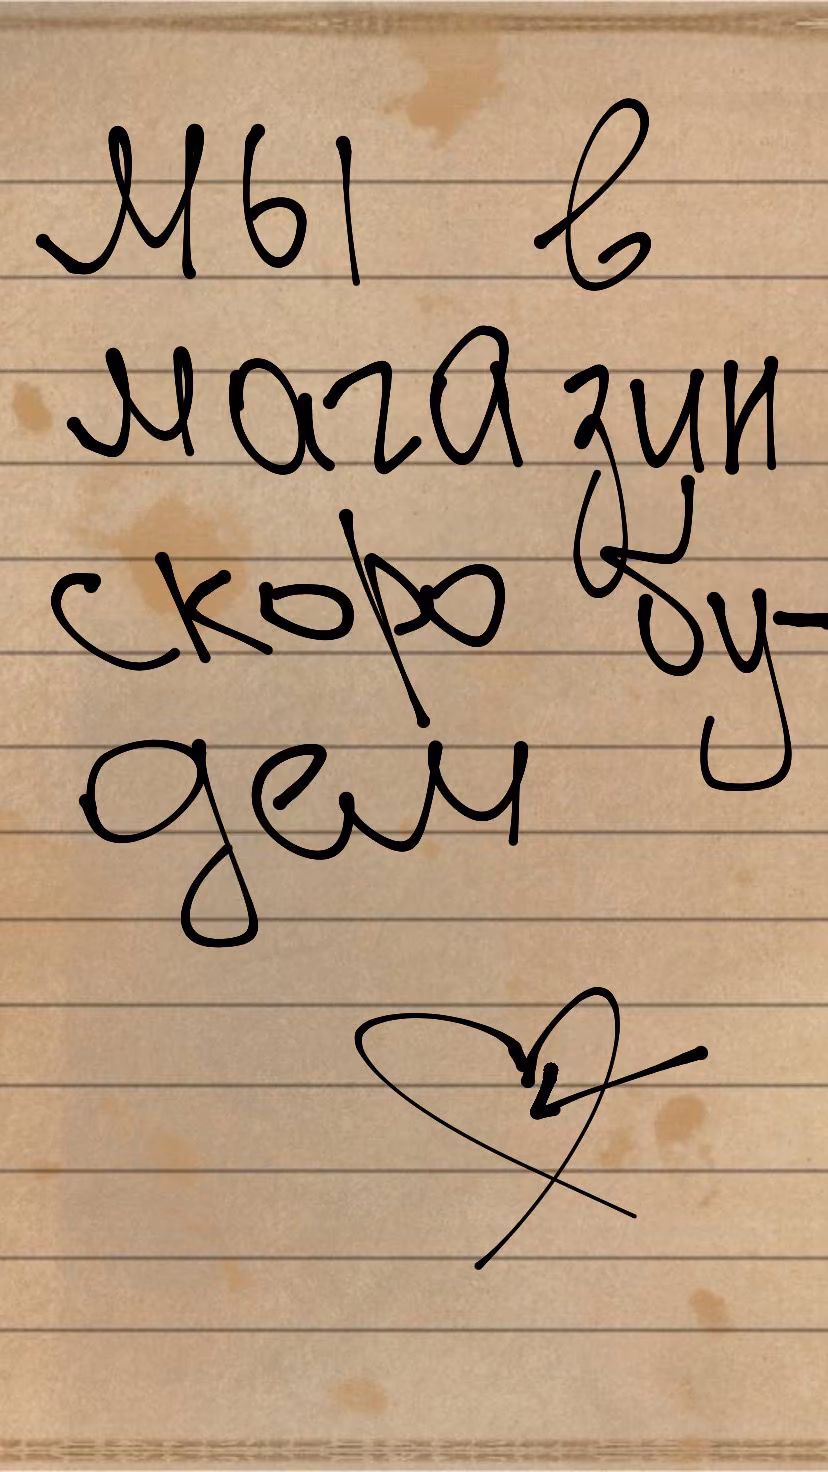 мы в
магазин
скоро бу-
дем